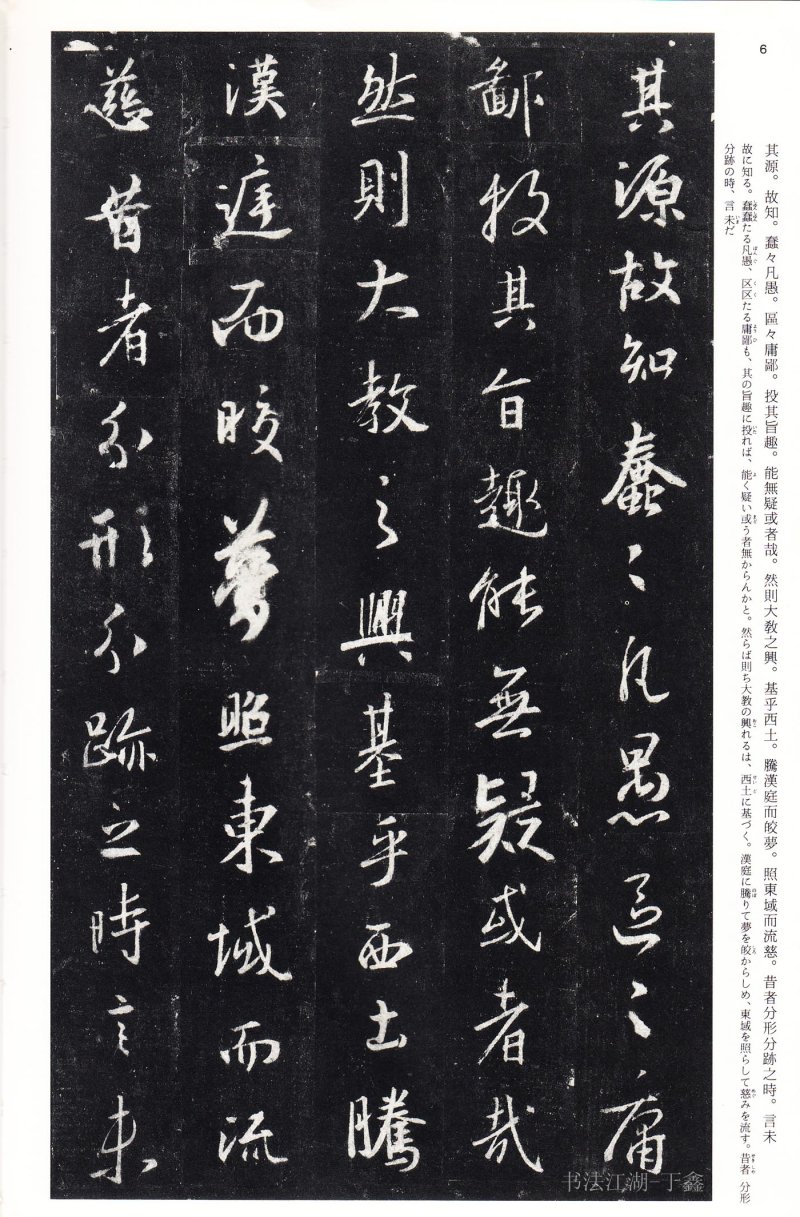 6
其源。故知。蠢々凡愚。區々庸鄙。投其旨趣。能無疑或者哉。然則大敎之興。基乎西土。騰漢庭而皎夢。照東域而流慈。昔者分形分跡之時。言未
故に知る。蠢蠢たる凡愚、区区たる庸鄙も、其の旨趣に投れば、能く疑い或う者無からんかと。然らば則ち大教の興れるは、西土に基づく。漢庭に騰りて夢を皎からしめ、東域を照らして慈みを流す。昔者 分形
分跡の時、言 未だ
其源故知蠢々凡愚區々庸
鄙投其旨趣能無疑或者哉
然則大教之興基乎西土騰
漢庭而皎夢照東域而流
慈昔者分形分跡之時言未
书法江湖-于鑫